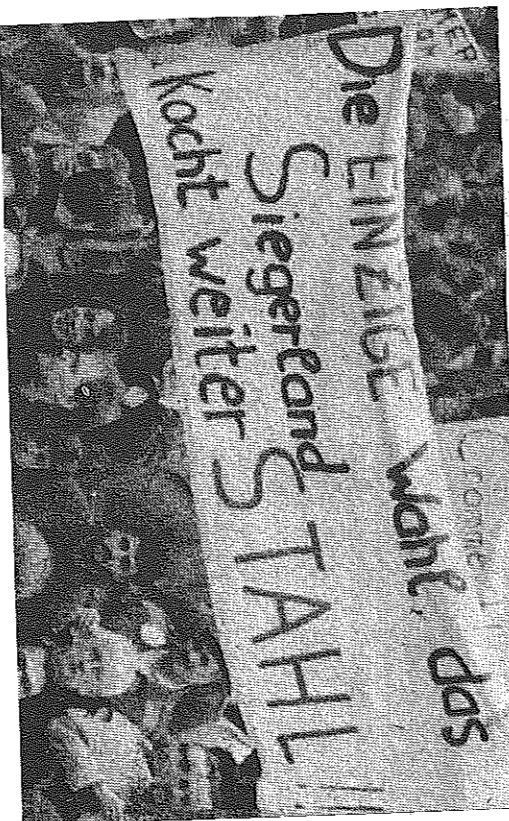 Die EINZIGE Wahl, das
Siegerland
Kocht weiter STAHL!!